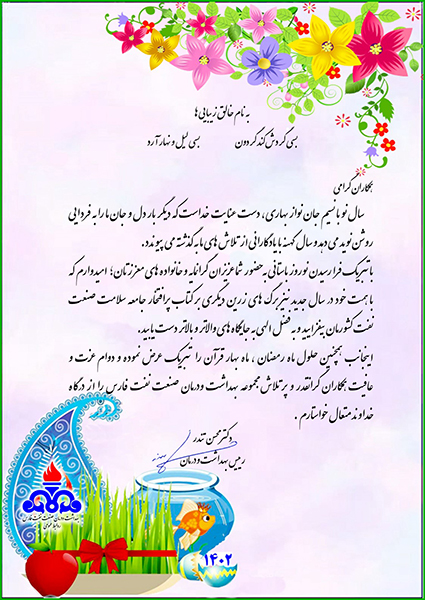 به نام خالق زیبایی ها
بسی گردش کند گردون بسی لیل و نهار آرد
همکاران گرامی
سال نو با نسیم جان نواز بهاری، دست عنایت خداست که دیگر بار دل و جان ما را به فردایی
روشن نوید می دهد و سال کهنه با یادگارانی از تلاش های ما به گذشته می پیوندد.
با تبریک فرارسیدن نوروز باستانی به حضور شما عزیزان گرانمایه و خانواده های معززتان؛ امیدوارم که
با همت خود در سال جدید نیز برگ های زرین دیگری بر کتاب پرافتخار جامعه سلامت صنعت
نفت کشورمان بیفزایید و به فضل الهی به جایگاه های والاتر و بالاتر دست یابید.
اینجانب همچنین حلول ماه رمضان ، ماه بهار قرآن را تبریک عرض نموده و دوام عزت و
عافیت همکاران گرانقدر و پرتلاش مجموعه بهداشت و درمان صنعت نفت فارس را از درگاه
خداوند متعال خواستارم .
دکتر محسن تندر
رییس بهداشت و درمان
بهداشت و درمان صنعت نفت فارس
روابط عمومی
۱۴۰۲